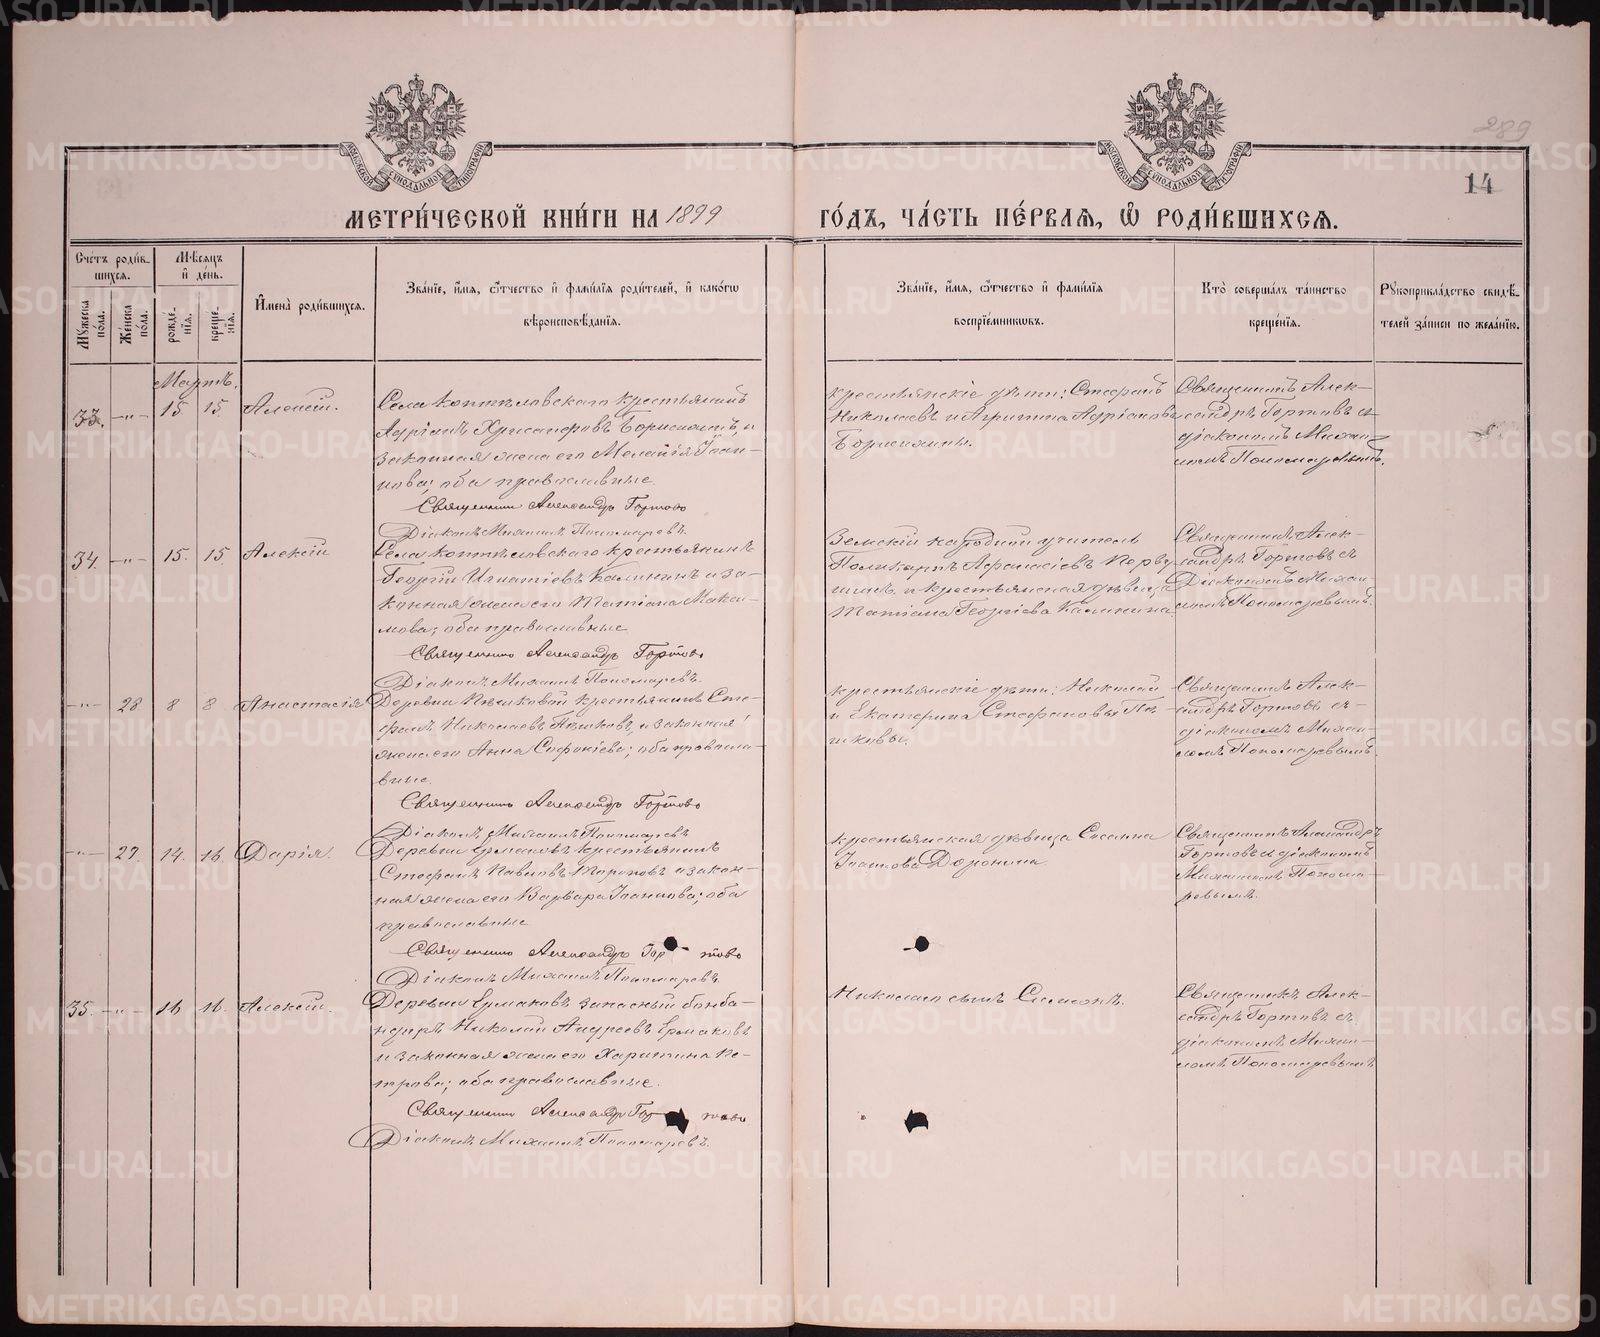 289
14
МОСКОВСКОЙ СѴНОДАЛЬНОЙ ТИПОГРАФІИ
МОСКОВСКОЙ СѴНОДАЛЬНОЙ ТИПОГРАФІИ
МЕТРИ́ЧЕСКОЙ КНИ́ГИ НА 1899
ГО́ДЪ, ЧА́СТЬ ПЕ́РВАЯ, Ѽ РОДИ́ВШИХСЯ.
Сче́тъ роди́в-
шихся.
Мѣ́сяцъ
и҆ де́нь.
Му́жеска по́ла.
Же́нска по́ла.
рожде́-нїя.
креще́-нїя.
И҆мена̀ роди́вшихся.
Зва́нїе, и҆́мя, ѻ҆́тчество и҆ фами́лїя роди́телей, и҆ како́гѡ
вѣроисповѣ́данїя.
Зва́нїе, и҆́мя, ѻ҆́тчество и҆ фами́лїя
воспрїе́мникѡвъ.
Кто̀ соверша́лъ та́инство
креще́нїя.
Рꙋкоприкла́дство свидѣ́-
телей за́писи по жела́нїю.
Мартъ.
33. —"— 15 15 Алексій.
Села Коптѣловскаго крестьянинъ
Адріанъ Хрисанфовъ Борисихинъ, и
законная жена его Меланія Іоан-
нова; оба православные.
Священникъ Александръ Гортовъ
Діаконъ Михаилъ Пономаревъ.
крестьянскіе дѣти: Стефанъ
Николаевъ и Агриппина Адріанова
Священникъ Алек-
сандръ Гортовъ съ
діакономъ Михаи-
ломъ Пономаревымъ.
34. —"— 15. 15 Алексій
Села Коптѣловскаго крестьянинъ
Георгій Игнатіевъ Калининъ и за-
конная жена его Татіана Макси-
мова; оба православные
Священникъ Александръ Гортовъ
Діаконъ Михаилъ Пономаревъ.
Земскій народный учитель
Поликарпъ Афанасіевъ
и крестьянская дѣвица
Татіана Георгіева Калинина.
Священникъ Алек-
сандръ Гортовъ съ
Діакономъ Михаи-
ломъ Пономаревымъ.
—"— 28 8 8 Анастасія
Деревни крестьянинъ Сте-
фанъ Николаевъ и законная
жена его Анна Софоніева; оба правосла-
вные.
Священникъ Александръ Гортовъ
Діаконъ Михаилъ Пономаревъ
крестьянскіе дѣти: Николай
и Екатерина Стефановы
Священникъ Алек-
сандръ Гортовъ съ
діакономъ Михаи-
ломъ Пономаревымъ.
—"— 29. 14. 16. Дарія.
Деревни Ермаковъ крестьянинъ
Стефанъ Павловъ и закон-
ная жена его Варвара Іоаннова; оба
православные
Священникъ Александръ Гортовъ
Діаконъ Михаилъ Пономаревъ.
крестьянская дѣвица
Іоаннова Доронина.
Священникъ Александръ
Гортовъ съ діакономъ
Михаиломъ Понома-
ревымъ.
35. —"— 16 16. Алексій.
Деревни Ермаковъ запасный бомба-
ндиръ Николай Андреевъ Ермаковъ
и законная жена его Харитина Пе-
трова; оба православные.
Священникъ Александръ Гортовъ
Діаконъ Михаилъ Пономаревъ.
сынъ Симеонъ.
Священникъ Алек-
сандръ Гортовъ съ
діакономъ Михаи-
ломъ Пономаревымъ
METRIKI.GASO-URAL.RU